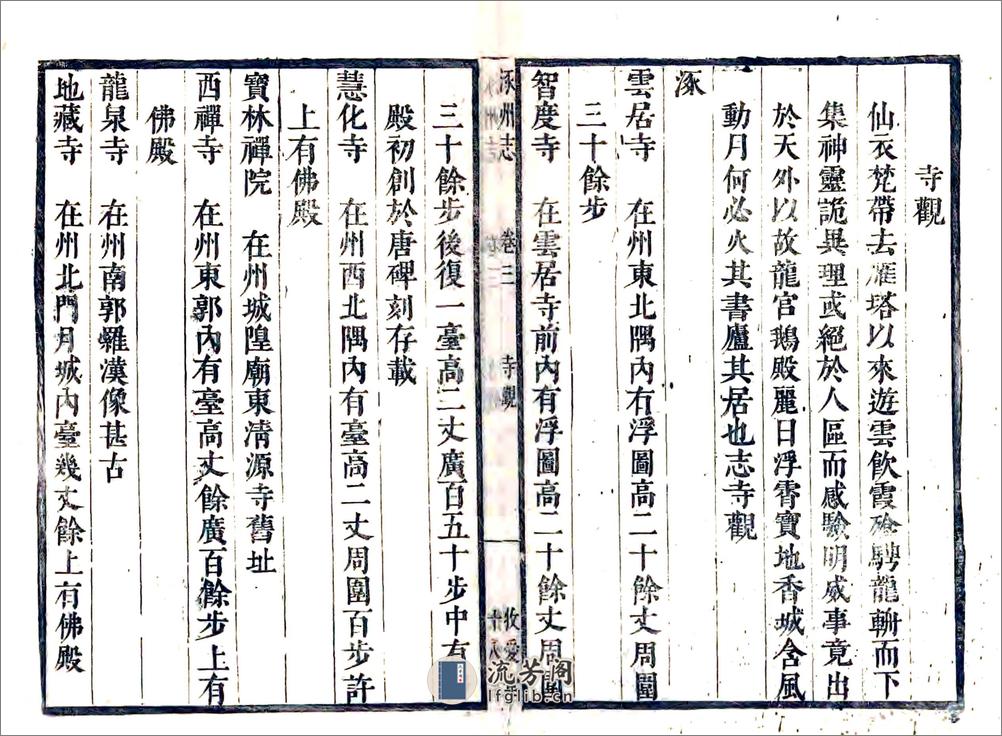 寺觀
仙衣梵帶去雁塔以來遊雲飲霞 騁龍軿而下
集神靈詭異理或絕於人區而感驗明威事竟出
於天外以故龍宮鵝殿麗日浮霄寶地香城含風
動月何必火其書廬其居也志寺觀
涿
雲居寺　在州東北隅內有浮圖高二十餘丈周圍
三十餘步
智度寺　在雲居寺前內有浮圖高二十餘丈周圍
涿州志　卷三　寺觀
三十餘步後復一臺高二丈廣百五十步中有
殿初創於唐碑刻存載
慧化寺　在州西北隅內有臺高二丈周圍百步許
上有佛殿
寶林禪院　在州城隍廟東清源寺舊址
西禪寺　在州東郭內有臺高丈餘廣百餘步上有
佛殿
龍泉寺　在州南郭羅漢像甚古
地藏寺　在州北門月城內臺幾丈餘上有佛殿
流芳閣
lfglib.cn